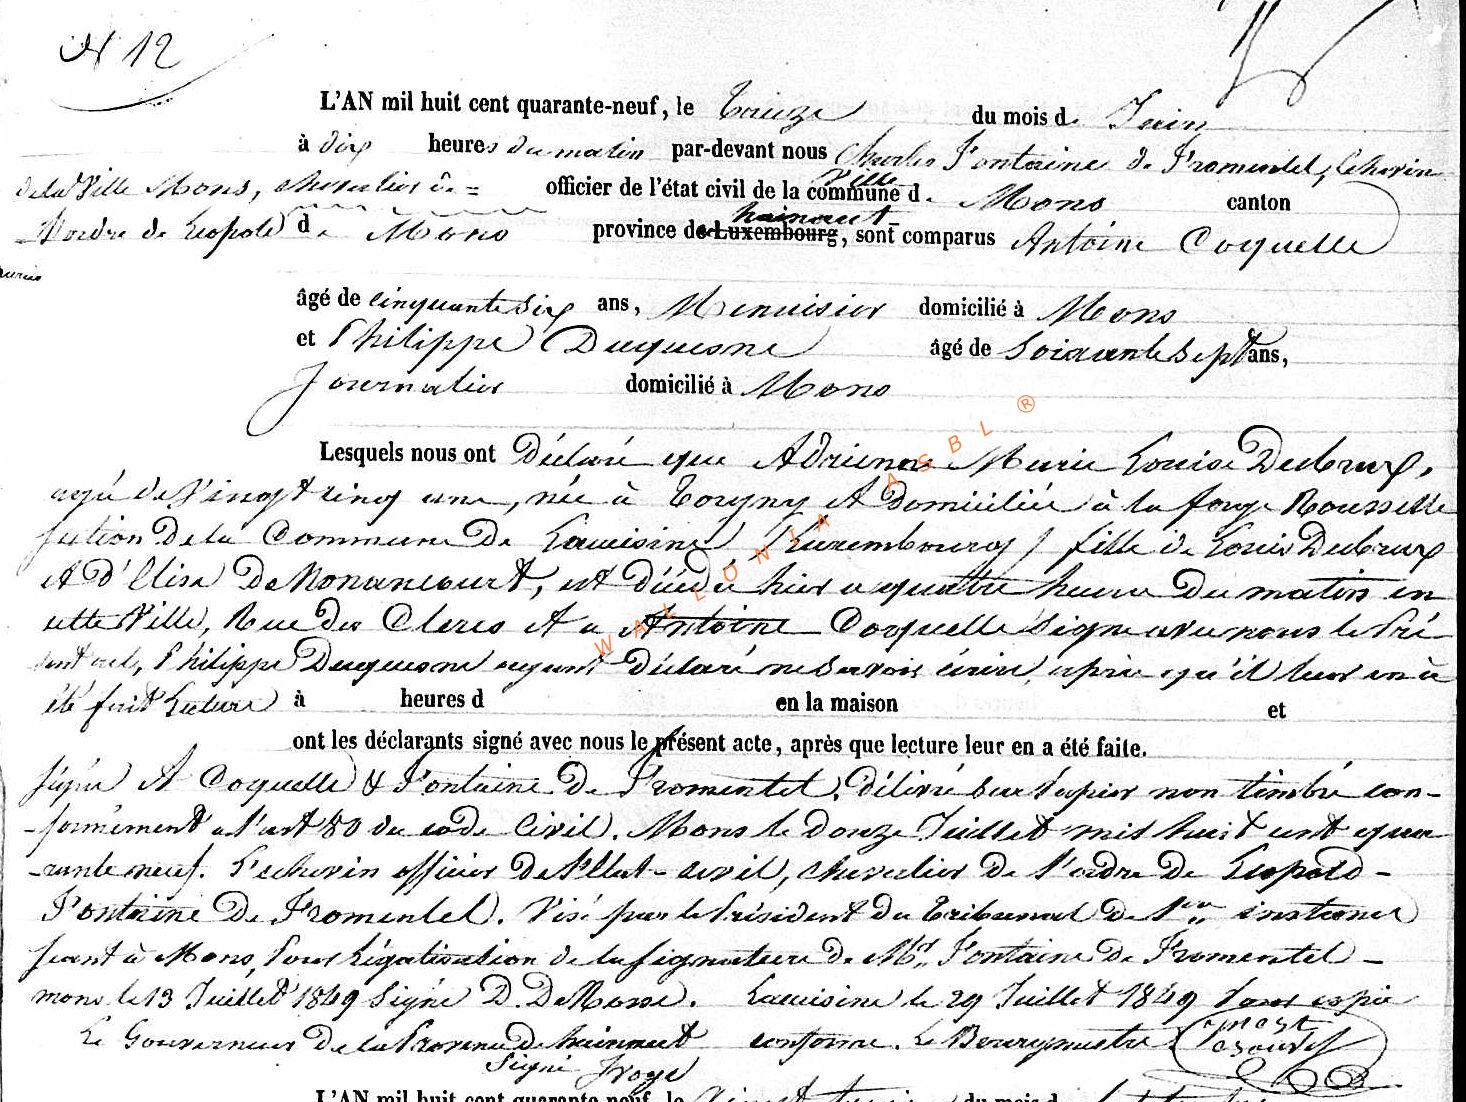 N 12
L'AN mil huit cent quarante-neuf, le treize du mois de Juin
à dix heures du matin par-devant nous Charles Fontaine de Fromentel, Echevin
de la Ville Mons, chevalier de = officier de l'état civil de la commune ville de Mons canton
l'ordre de Leopold de Mons province de Luxembourg hainaut, sont comparus Antoine Coquelle
âgé de cinquante six ans, Menuisier domicilié à Mons
et Philippe Duquesne âgé de Soixante sept ans,
Journalier domicilié à Mons
Lesquels nous ont Déclaré que Adrienne Marie Louise Debrux,
agée de Vingt cinq ans, née à Torgny et Domiciliée à la forge Roussel
section de la Commune de Lacuisine (Luxembourg) fille de Louis Debrux
et d'Elisa De Nonancourt, est décédée hier a quatre heures du matin en
cette Ville, Rue des Clercs et a Antoine Coquelle signé avec nous le Pré-
sent acte, Philippe Duquesne ayant déclaré ne savoir écrire, après qu'il leur en à
été fait Lecture à heures d en la maison et
ont les déclarants signé avec nous le présent acte, après que lecture leur en a été faite.
Signé A Coquelle & Fontaine De Fromentel. Délivré sur Papier non timbré con-
-formément à l'art 80 du code Civil. Mons le douze Juillet mil huit cent qua
-rante neuf. L'echevin officier de l'Etat-civil, chevalier de l'ordre de Leopold -
Fontaine de Fromentel. Visé par le Président du Tribunal de 1ere instance
séant à Mons, Pour Légalisation de la signature de Mr Fontaine de Fromentel -
mons le 13 Juillet 1849 Signé D. Lacuisine le 29 Juillet 1849 Pour copie
Le Gouverneur de la Province de hainaut conforme. Le Bourgmestre
Signé Troye
L'AN mil huit cent quarante-neuf, le du mois d
WALLONIA ASBL ®